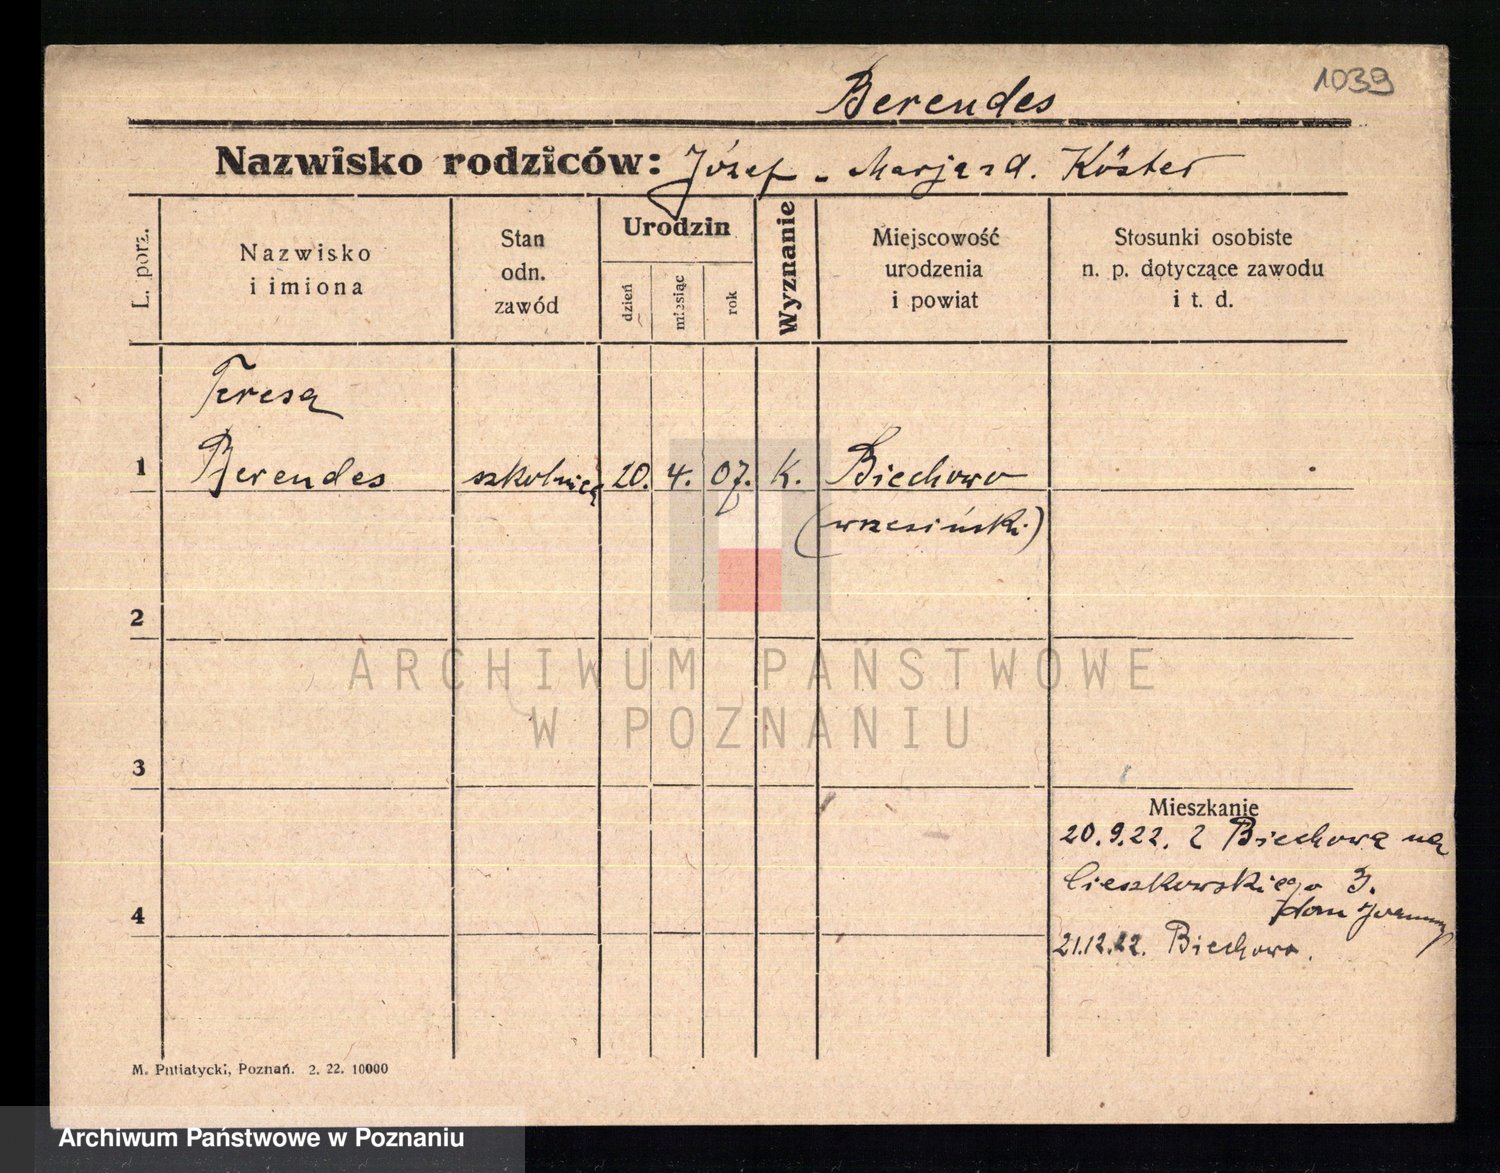 1039
Berendes
Nazwisko rodziców: Józef - Marja z d. Köster
L. porz.
Nazwisko
i imiona
Stan
odn.
zawód
Urodzin
dzień
miesiąc
rok
Wyznanie
Miejscowość
urodzenia
i powiat
Stosunki osobiste
n. p. dotyczące zawodu
i t. d.
Teresa
1 Berendes szkolnica 20. 4. 07. K. Biechowo
(wrzesiński)
2
ARCHIWUM PAŃSTWOWE
W POZNANIU
3
Mieszkanie
20.9.22. z Biechowa na
Cieszkowskiego 3.
dom
4
21.12.22. Biechowo.
M. Putiatycki, Poznań. 2. 22. 10000
Archiwum Państwowe w Poznaniu